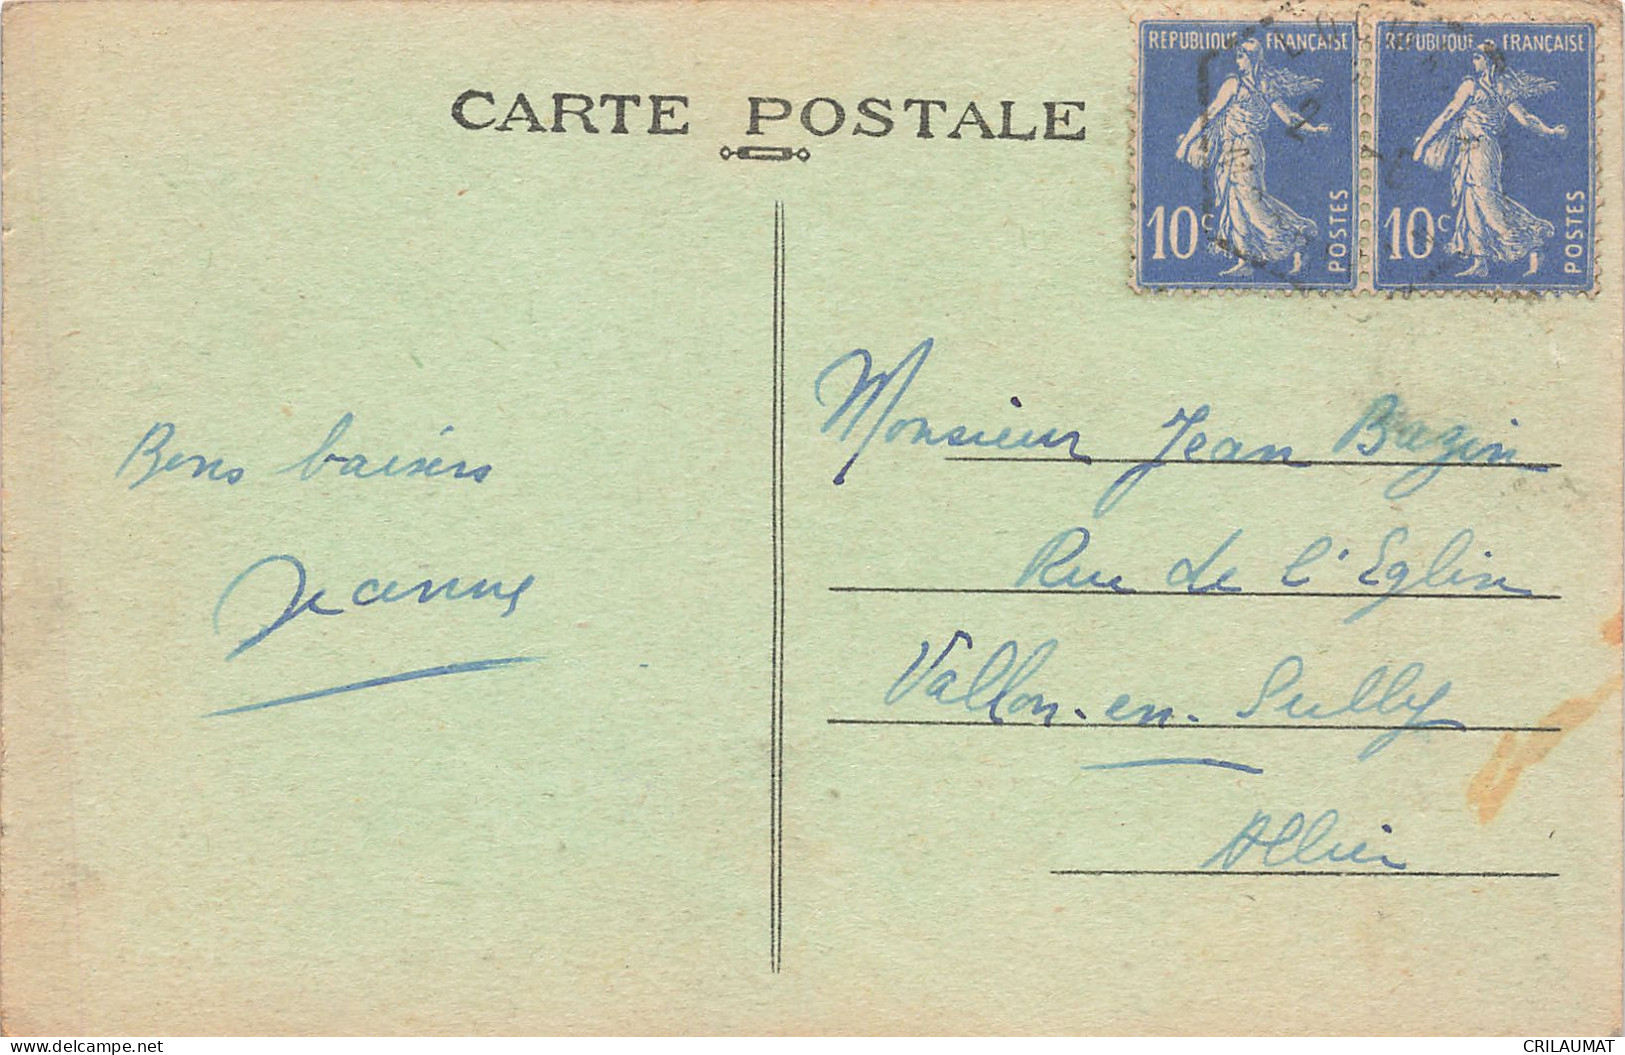 CARTE POSTALE
REPUBLIQUE FRANÇAISE
10c
POSTES
REPUBLIQUE FRANÇAISE
10c
POSTES
Bons baisers
Jeanne
Monsieur Jean Bazin
Rue de l'Eglise
Vallon-en-Sully
Allier
delcampe.net
CRILAUMAT